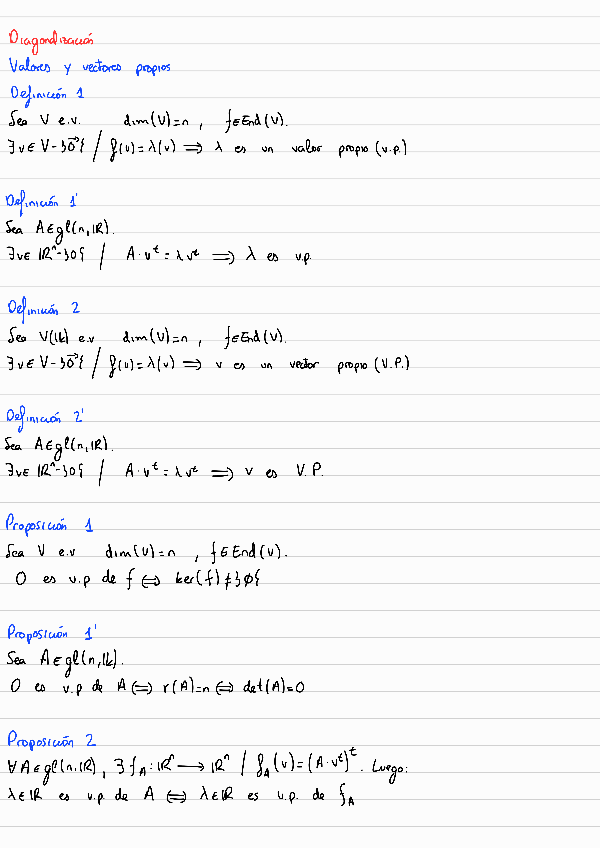 Diagonalización
Valores y vectores propios
Definición 1
Sea V e.v. dim(V)=n , f∈End(V).
∃v∈V-}0⃗{ / f(v)=λ(v) ⟹ λ es un valor propio (v.p.)
Definición 1'
Sea A∈gl(n,ℝ).
∃v∈ ℝⁿ-}0{ / A·vᵗ=λvᵗ ⟹ λ es v.p.
Definición 2
Sea V(𝕜) e.v dim(V)=n , f∈End(V).
∃v∈V-}0⃗{ / f(v)=λ(v) ⟹ v es un vector propio (V.P.)
Definición 2'
Sea A∈gl(n,ℝ).
∃v∈ ℝⁿ-}0{ / A·vᵗ=λvᵗ ⟹ v es V.P.
Proposición 1
Sea V e.v dim(V)=n , f∈End(V).
0 es v.p de f ⟺ ker(f)≠}∅{
Proposición 1'
Sea A∈gl(n,𝕜).
0 es v.p de A ⟺ r(A)=n ⟺ det(A)=0
Proposición 2
∀A∈gl(n,ℝ), ∃ f_A: ℝⁿ ⟶ ℝⁿ / f_A(v)=(A·vᵗ)ᵗ. Luego:
λ∈ℝ es v.p. de A ⟺ λ∈ℝ es v.p. de f_A